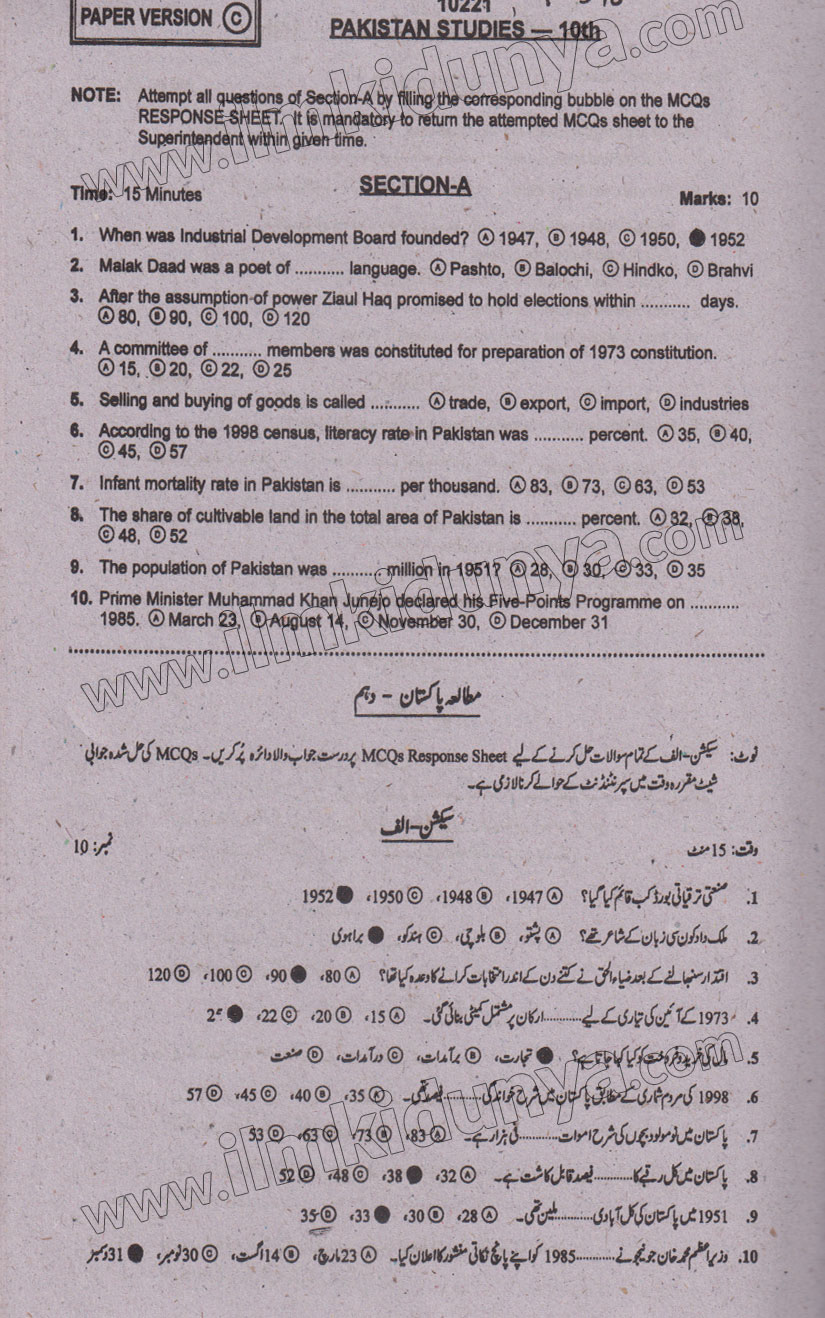 PAPER VERSION Ⓒ
10221
PAKISTAN STUDIES — 10th
NOTE: Attempt all questions of Section-A by filling the corresponding bubble on the MCQs
RESPONSE SHEET. It is mandatory to return the attempted MCQs sheet to the
Superintendent within given time.
SECTION-A
Time: 15 Minutes Marks: 10
1. When was Industrial Development Board founded? Ⓐ 1947, Ⓑ 1948, Ⓒ 1950, ● 1952
2. Malak Daad was a poet of .......... language. Ⓐ Pashto, Ⓑ Balochi, Ⓒ Hindko, Ⓓ Brahvi
3. After the assumption of power Ziaul Haq promised to hold elections within .......... days.
Ⓐ 80, Ⓑ 90, Ⓒ 100, Ⓓ 120
4. A committee of .......... members was constituted for preparation of 1973 constitution.
Ⓐ 15, Ⓑ 20, Ⓒ 22, Ⓓ 25
5. Selling and buying of goods is called .......... Ⓐ trade, Ⓑ export, Ⓒ import, Ⓓ industries
6. According to the 1998 census, literacy rate in Pakistan was .......... percent. Ⓐ 35, Ⓑ 40,
Ⓒ 45, Ⓓ 57
7. Infant mortality rate in Pakistan is .......... per thousand. Ⓐ 83, Ⓑ 73, Ⓒ 63, Ⓓ 53
8. The share of cultivable land in the total area of Pakistan is .......... percent. Ⓐ 32, Ⓑ 38,
Ⓒ 48, Ⓓ 52
9. The population of Pakistan was .......... million in 1951? Ⓐ 28, Ⓑ 30, Ⓒ 33, Ⓓ 35
10. Prime Minister Muhammad Khan Junejo declared his Five-Points Programme on ..........
1985. Ⓐ March 23, Ⓑ August 14, Ⓒ November 30, Ⓓ December 31
مطالعہ پاکستان - دہم
نوٹ: سیکشن-الف کے تمام سوالات حل کرنے کے لیے MCQs Response Sheet پر درست جواب والا دائرہ پُر کریں۔ MCQs کی حل شدہ جوابی
شیٹ مقررہ وقت میں سپرنٹنڈنٹ کے حوالے کرنا لازمی ہے۔
سیکشن-الف
وقت: 15 منٹ نمبر: 10
1. صنعتی ترقیاتی بورڈ کب قائم کیا گیا؟ Ⓐ 1947، Ⓑ 1948، Ⓒ 1950، ● 1952
2. ملک داد کون سی زبان کے شاعر تھے؟ Ⓐ پشتو، Ⓑ بلوچی، Ⓒ ہندکو، ● براہوی
3. اقتدار سنبھالنے کے بعد ضیاء الحق نے کتنے دن کے اندر انتخابات کرانے کا وعدہ کیا تھا؟ Ⓐ 80، ● 90، Ⓒ 100، Ⓓ 120
4. 1973 کے آئین کی تیاری کے لیے .......... ارکان پر مشتمل کمیٹی بنائی گئی۔ Ⓐ 15، Ⓑ 20، Ⓒ 22، ●
5. مال کی خرید و فروخت کو کیا کہا جاتا ہے؟ ● تجارت، Ⓑ برآمدات، Ⓒ درآمدات، Ⓓ صنعت
6. 1998 کی مردم شماری کے مطابق پاکستان میں شرح خواندگی .......... فیصد تھی۔ Ⓐ 35، Ⓑ 40، Ⓒ 45، Ⓓ 57
7. پاکستان میں نومولود بچوں کی شرح اموات .......... فی ہزار ہے۔ Ⓐ 83، Ⓑ 73، Ⓒ 63، Ⓓ 53
8. پاکستان میں کل رقبے کا .......... فیصد قابل کاشت ہے۔ Ⓐ 32، ● 38، Ⓒ 48، Ⓓ 52
9. 1951 میں پاکستان کی کل آبادی .......... ملین تھی۔ Ⓐ 28، Ⓑ 30، ● 33، Ⓓ 35
10. وزیراعظم محمد خان جونیجو نے .......... 1985 کو اپنے پانچ نکاتی منشور کا اعلان کیا۔ Ⓐ 23 مارچ، Ⓑ 14 اگست، Ⓒ 30 نومبر، ● 31 دسمبر
www.ilmkidunya.com
www.ilmkidunya.com
www.ilmkidunya.com